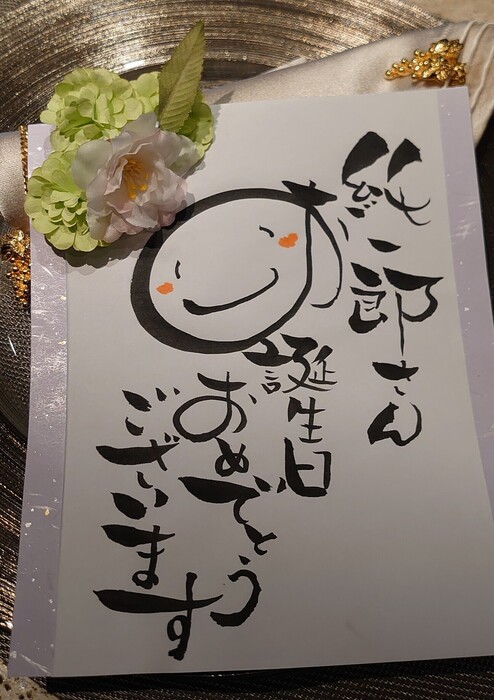 純一郎さん
お誕生日
おめでとう
ございます